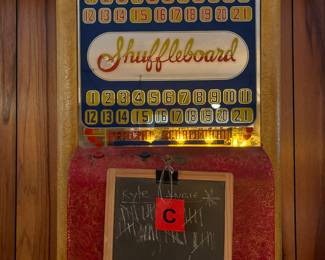 12 13 14 15 16 17 18 19 20 21
Shuffleboard
1 2 3 4 5 6 7 8 9 10 11
12 13 14 15 16 17 18 19 20 21
Kyle Angie
C